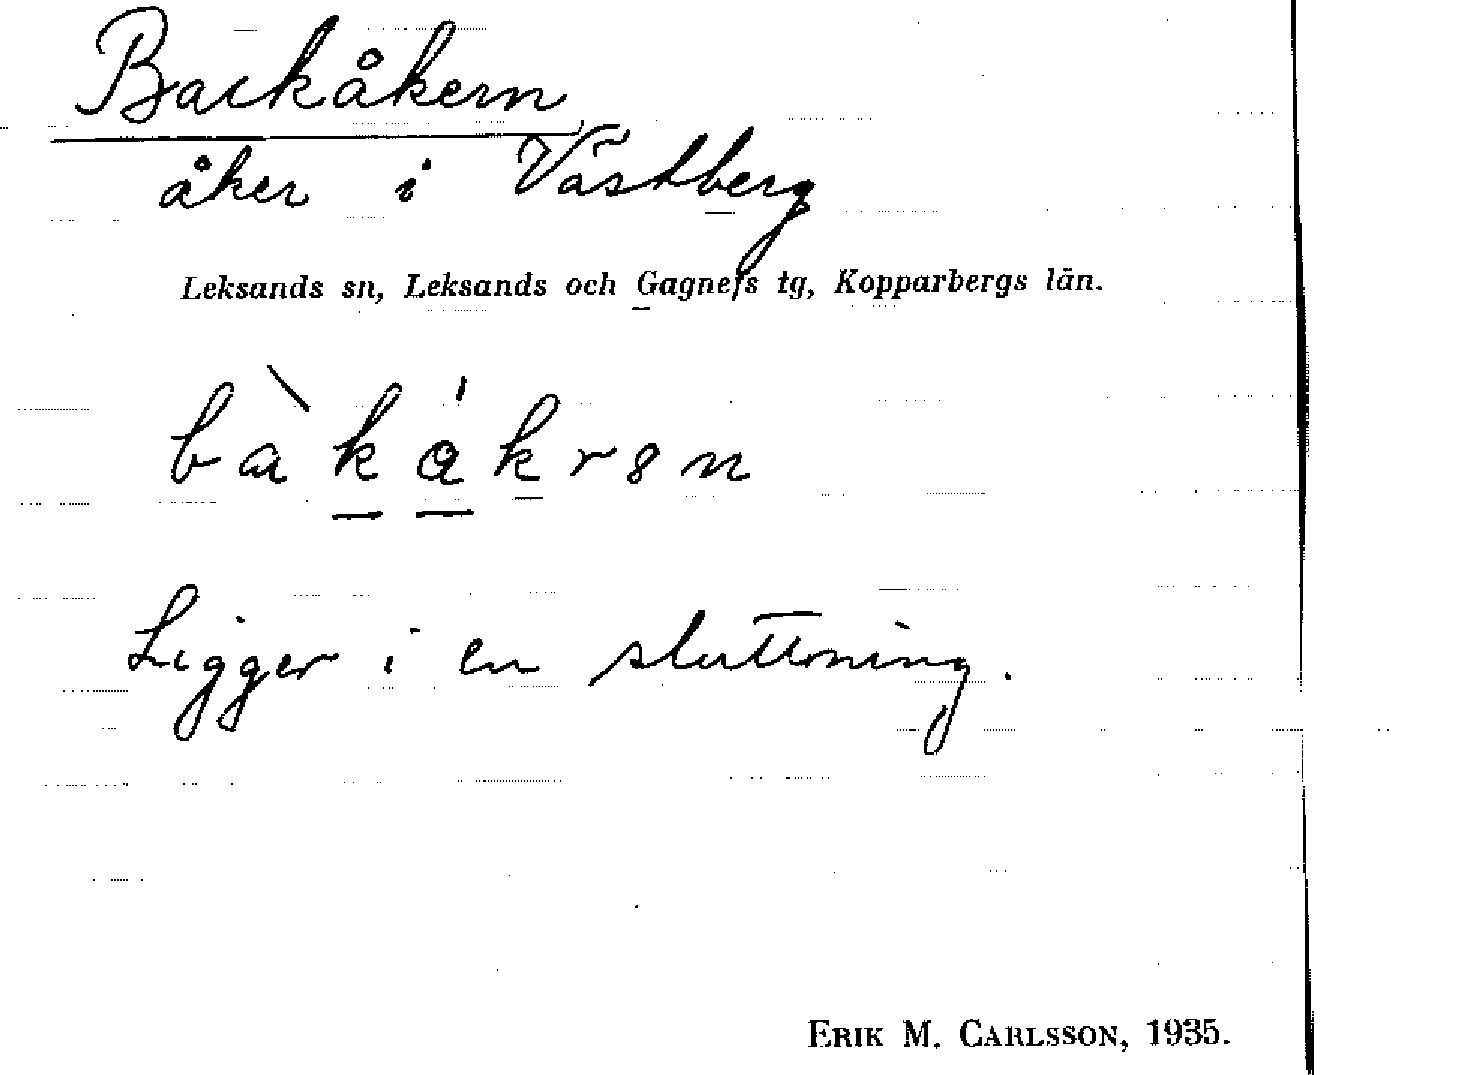 Backåkern
åker i Västberg
Leksands sn, Leksands och Gagnefs tg, Kopparbergs län.
bàkåkrən
Ligger i en sluttning.
ERIK M. CARLSSON, 1935.